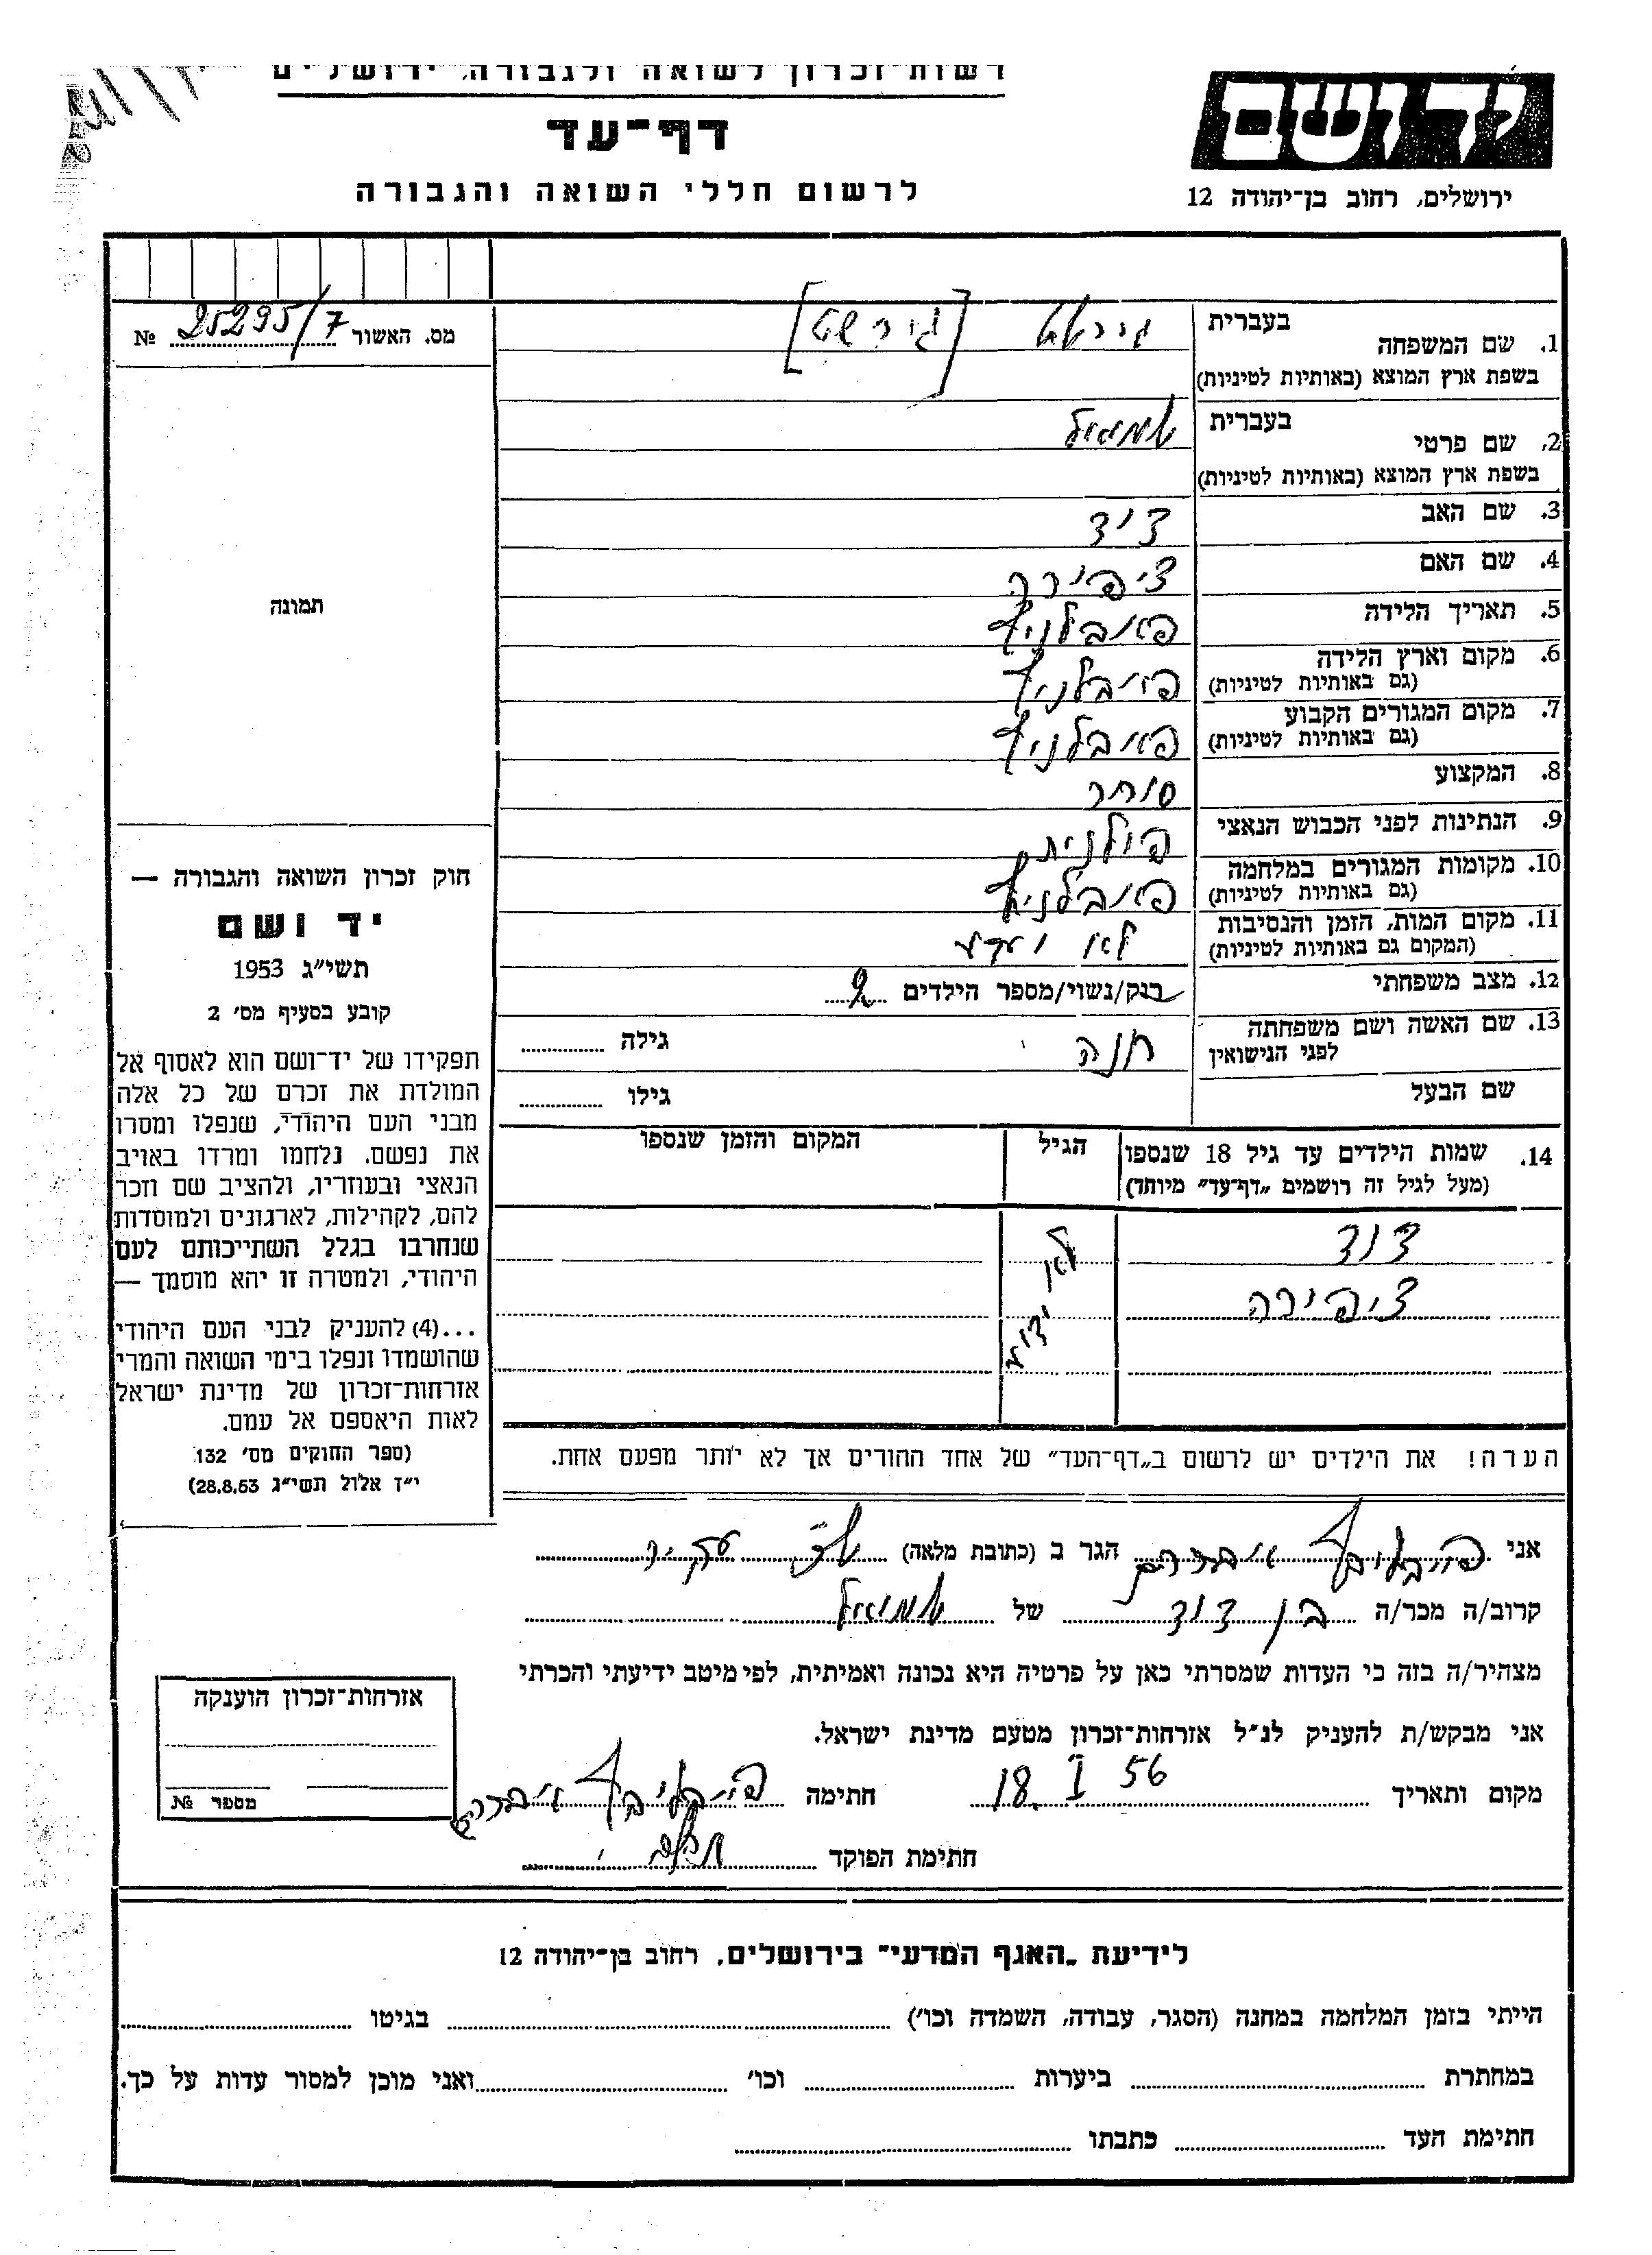 רשות־זכרון לשואה ולגבורה, ירושלים
דף־עד
לרשום חללי השואה והגבורה
יד ושם
ירושלים, רחוב בן־יהודה 12
מס. האשור 25295/7 №
תמונה
חוק זכרון השואה והגבורה —
יד ושם
תשי״ג 1953
קובע בסעיף מס׳ 2
תפקידו של יד־ושם הוא לאסוף אל
המולדת את זכרם של כל אלה
מבני העם היהודי, שנפלו ומסרו
את נפשם. נלחמו ומרדו באויב
הנאצי ובעוזריו, ולהציב שם וזכר
להם, לקהילות, לארגונים ולמוסדות
שנחרבו בגלל השתייכותם לעם
היהודי, ולמטרה זו יהא מוסמך —
...(4) להעניק לבני העם היהודי
שהושמדו ונפלו בימי השואה והמרי
אזרחות־זכרון של מדינת ישראל
לאות היאספם אל עמם.
(ספר החוקים מס׳ 132
י״ז אלול תשי״ג 28.8.53)
1. שם המשפחה בעברית [גירשט]
בשפת ארץ המוצא (באותיות לטיניות)
2. שם פרטי בעברית שמואל
בשפת ארץ המוצא (באותיות לטיניות)
3. שם האב דוד
4. שם האם ציפורה
5. תאריך הלידה
6. מקום וארץ הלידה
(גם באותיות לטיניות)
7. מקום המגורים הקבוע
(גם באותיות לטיניות)
8. המקצוע סוחר
9. הנתינות לפני הכבוש הנאצי פולנית
10. מקומות המגורים במלחמה
(גם באותיות לטיניות)
11. מקום המות, הזמן והנסיבות לא
(המקום גם באותיות לטיניות)
12. מצב משפחתי רנק/נשוי/מספר הילדים 2
13. שם האשה ושם משפחתה חנה גילה
לפני הנישואין
שם הבעל גילו
14. שמות הילדים עד גיל 18 שנספו הגיל המקום והזמן שנספו
(מעל לגיל זה רושמים „דף־עד״ מיוחד)
דוד לא
ציפירה ידוע
הערה! את הילדים יש לרשום ב„דף־העד״ של אחד ההורים אך לא יותר מפעם אחת.
אני אברהם הגר ב (כתובת מלאה)
קרוב/ה מכר/ה בן דוד של שמואל
מצהיר/ה בזה כי העדות שמסרתי כאן על פרטיה היא נכונה ואמיתית, לפי מיטב ידיעתי והכרתי
אני מבקש/ת להעניק לנ״ל אזרחות־זכרון מטעם מדינת ישראל.
מקום ותאריך 18. I 56 חתימה
חתימת הפוקד
אזרחות־זכרון הוענקה
מספר №
לידיעת „האגף המדעי״ בירושלים, רחוב בן־יהודה 12
הייתי בזמן המלחמה במחנה (הסגר, עבודה, השמדה וכו׳) בגיטו
במחתרת ביערות וכו׳ ואני מוכן למסור עדות על כך.
חתימת העד כתבתו